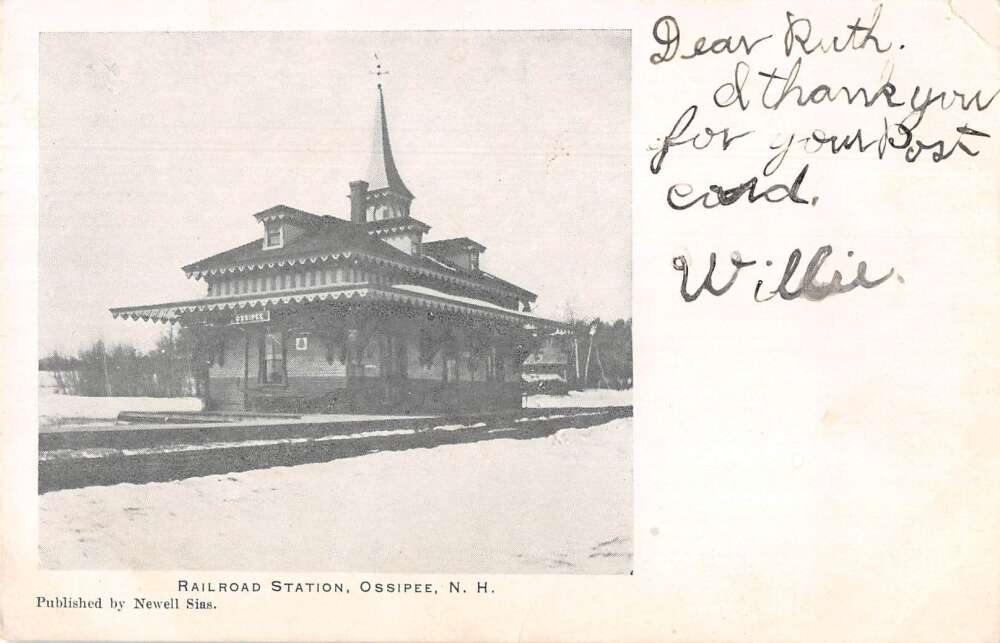 Dear Ruth.
I thank you
for your Post
card.
Willie.
OSSIPEE
RAILROAD STATION, OSSIPEE, N. H.
Published by Newell Sias.